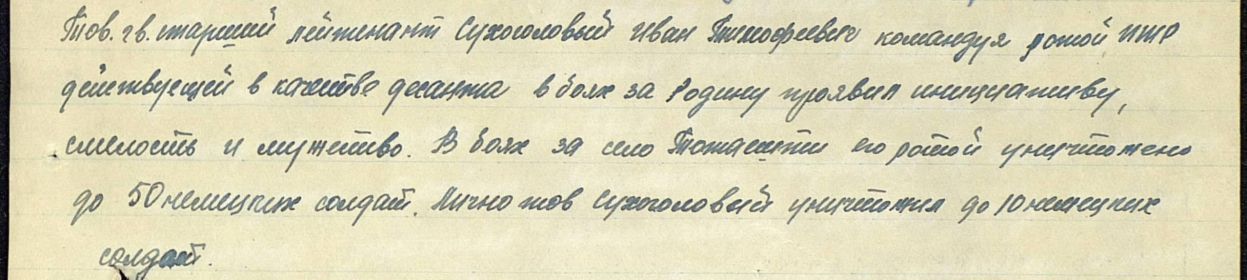 Тов. гв. старший лейтенант Сухоголовый Иван Тимофеевич командуя ротой ПТР
действующей в качестве десанта в боях за Родину проявил инициативу,
смелость и мужество. В боях за село его ротой уничтожено
до 50 немецких солдат. Лично тов Сухоголовый уничтожил до 10 немецких
солдат.